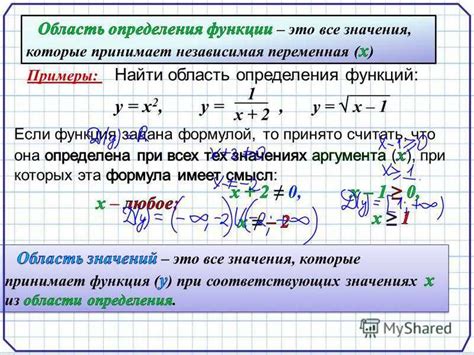 Область определения функции – это все значения,
которые принимает независимая переменная (х)
Примеры: Найти область определения функций:
у = х², у = 1/(х + 2) , у = √х – 1
Если функция задана формулой, то принято считать, что
она определена при всех тех значениях аргумента (х), при
которых эта формула имеет смысл:
х – любое; х + 2 ≠ 0, х – 1 ≥ 0,
х ≠ – 2 х ≥ 1
D(y) = R
x-1≥0
x≥1
D(y)=(-∞;-2)(-2;+∞) D(y)=[1;+∞)
Область значений – это все значения, которые
принимает функция (у) при соответствующих значениях х
из области определения.
MyShared